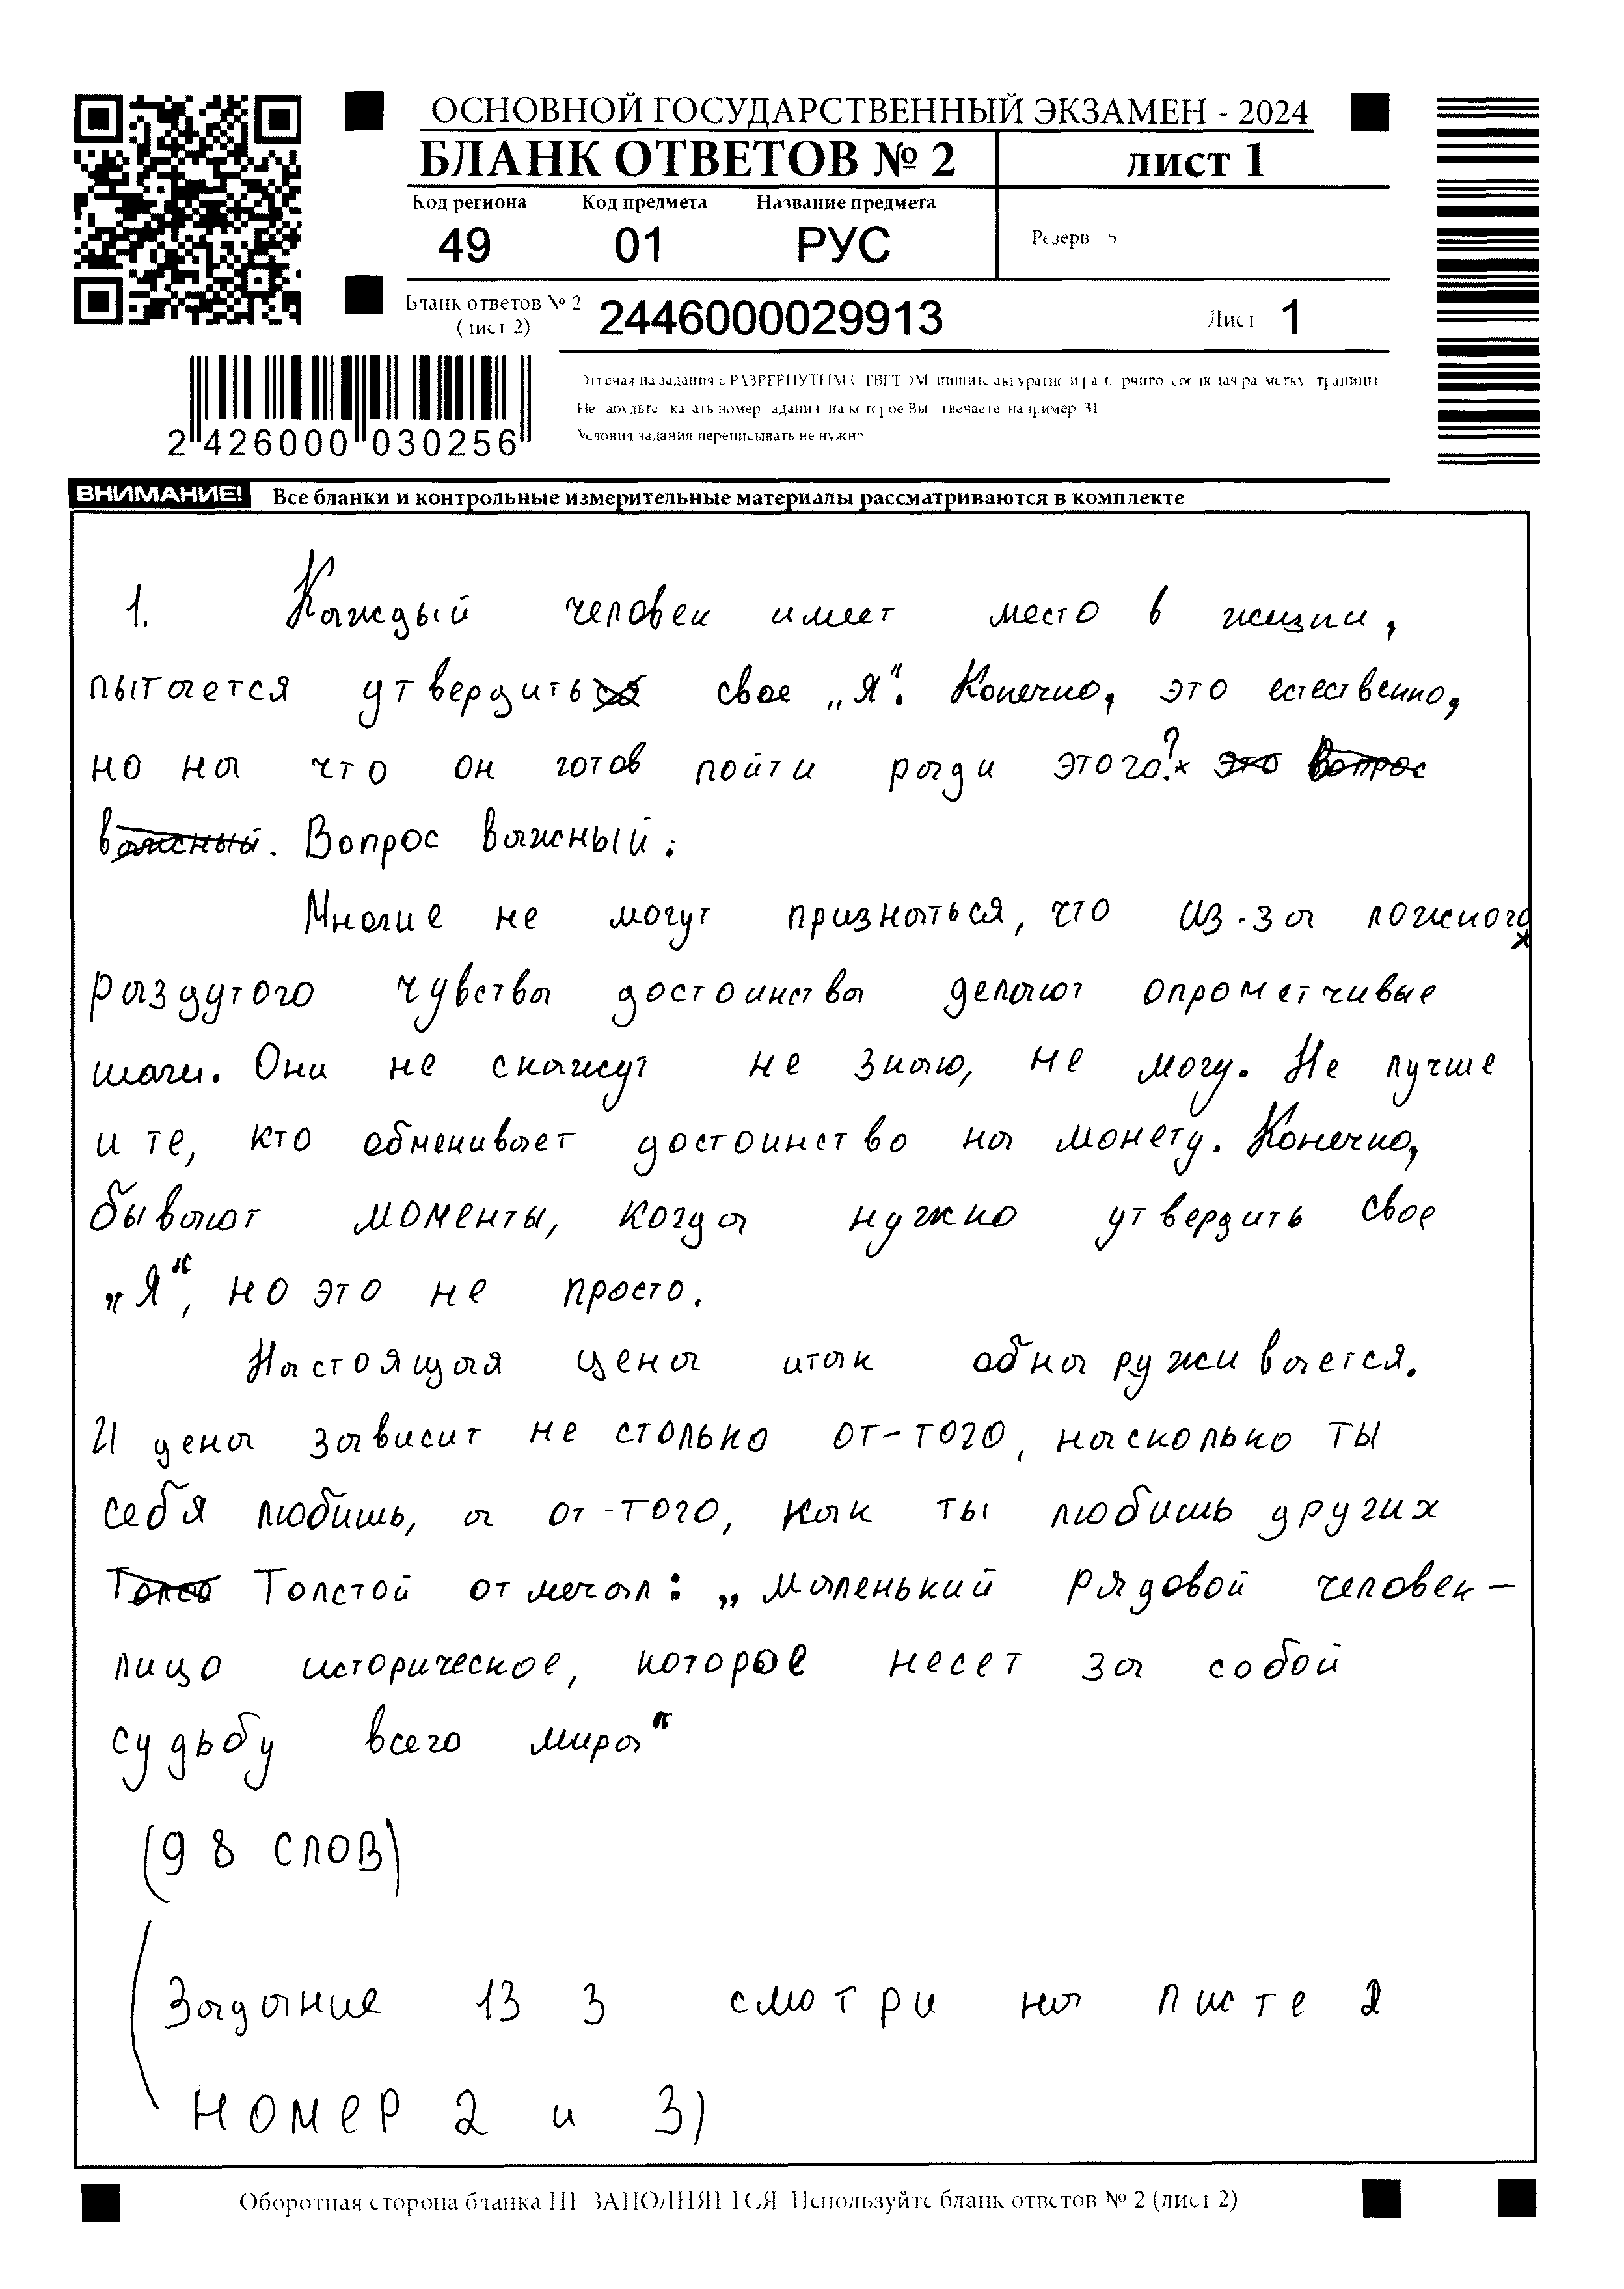 ОСНОВНОЙ ГОСУДАРСТВЕННЫЙ ЭКЗАМЕН - 2024
БЛАНК ОТВЕТОВ № 2 лист 1
Код региона Код предмета Название предмета
49 01 РУС Резерв
Бланк ответов № 2 (лист 2) 2446000029913 Лист 1
2 426000 030256
Условия задания переписывать не нужно
ВНИМАНИЕ! Все бланки и контрольные измерительные материалы рассматриваются в комплекте
1. Каждый человек имеет место в жизни,
пытается утвердить свое „Я“. Конечно, это естественно,
но на что он готов пойти ради этого? это Вопрос
важный. Вопрос важный.
Многие не могут признаться, что из-за ложного
раздутого чувства достоинства делают опрометчивые
шаги. Они не скажут не знаю, не могу. Не лучше
и те, кто обменивает достоинство на монету. Конечно,
бывают моменты, когда нужно утвердить свое
„Я“, но это не просто.
Настоящая цена итак обнаруживается.
И цена зависит не столько от-того, насколько ты
себя любишь, а от-того, как ты любишь других
Толстой отмечал: „Маленький рядовой человек –
лицо историческое, которое несет за собой
судьбу всего мира“
(98 слов)
(Задание 13 3 смотри на листе 2
номер 2 и 3)
Оборотная сторона бланка НЕ ЗАПОЛНЯЕТСЯ. Используйте бланк ответов № 2 (лист 2)